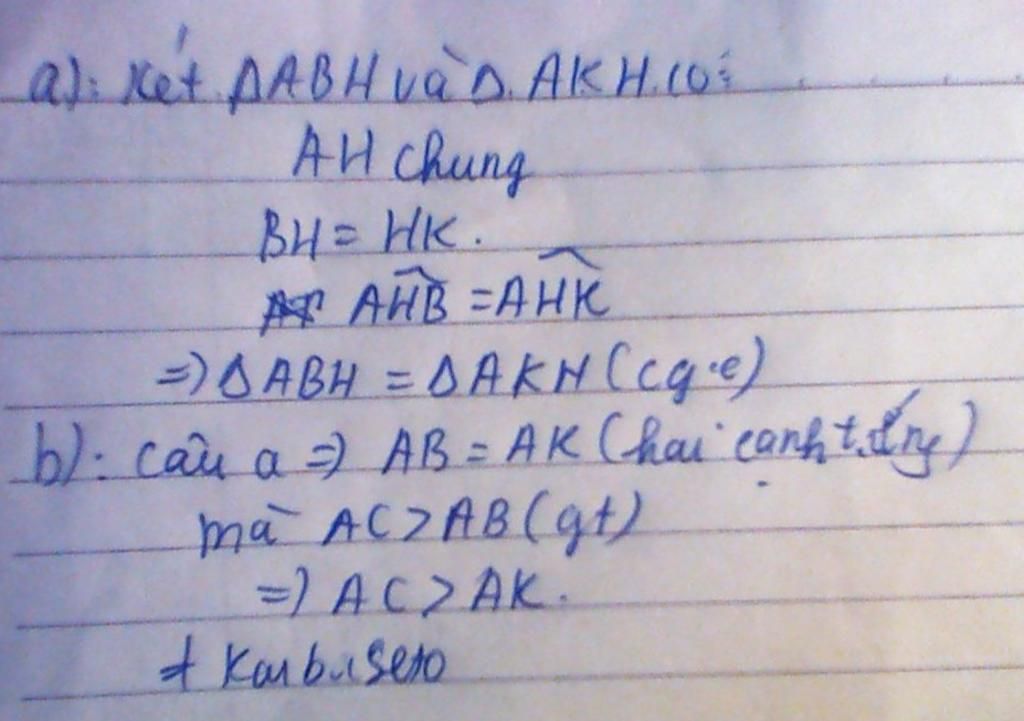 a): Xét ΔABH và Δ. AKH. có:
AH chung
BH = HK.
AHB = AHK
=) ΔABH = ΔAKH (cg.c)
b): câu a =) AB = AK (hai cạnh t.ứng)
mà AC > AB (gt)
=) AC > AK.